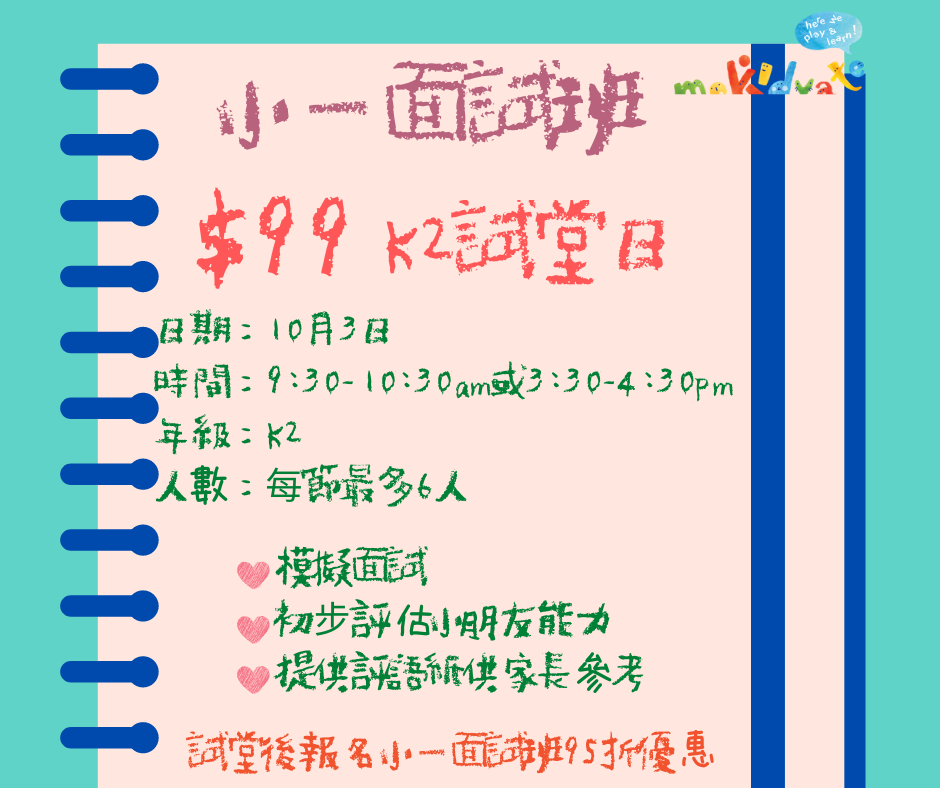 here we
play &
learn!
makidvate
小一面試班
$99 K2試堂日
日期：10月3日
時間：9:30-10:30am或3:30-4:30pm
年級：K2
人數：每節最多6人
模擬面試
初步評估小朋友能力
提供評語紙供家長參考
試堂後報名小一面試班95折優惠